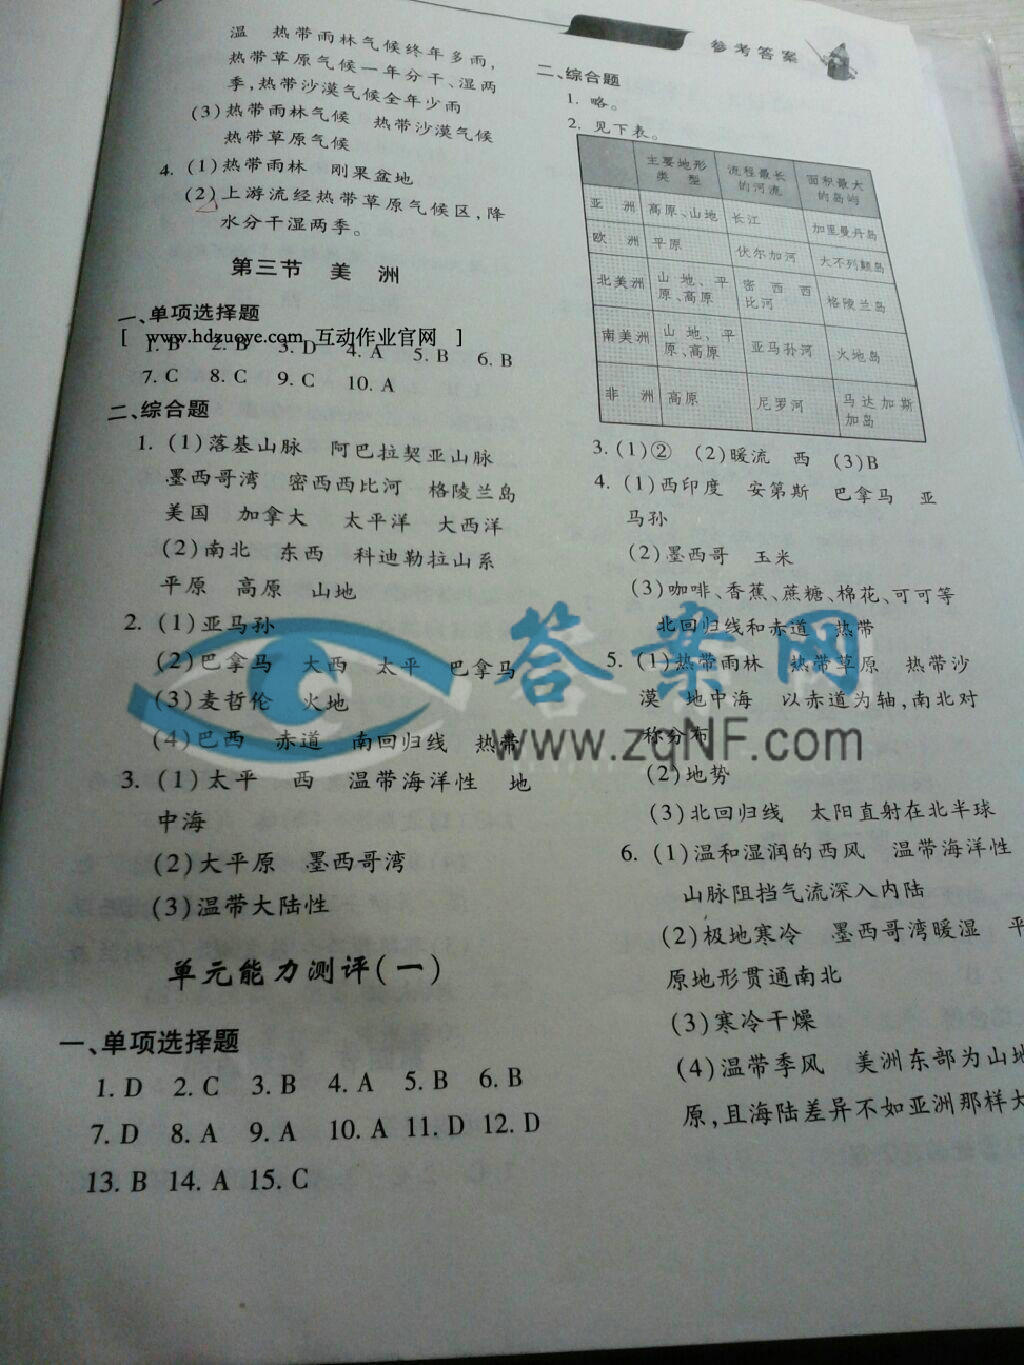 参考答案
温 热带雨林气候终年多雨,
热带草原气候一年分干、湿两
季,热带沙漠气候全年少雨
(3)热带雨林气候 热带沙漠气候
热带草原气候
4. (1)热带雨林 刚果盆地
(2)上游流经热带草原气候区,降
水分干湿两季。
第三节 美 洲
一、单项选择题
[ www.hdzuoye.com 互动作业官网 ]
1. B 2. B 3. D 4. A 5. B 6. B
7. C 8. C 9. C 10. A
二、综合题
1. (1)落基山脉 阿巴拉契亚山脉
墨西哥湾 密西西比河 格陵兰岛
美国 加拿大 太平洋 大西洋
(2)南北 东西 科迪勒拉山系
平原 高原 山地
2. (1)亚马孙
(2)巴拿马 大西 太平 巴拿马
(3)麦哲伦 火地
(4)巴西 赤道 南回归线 热带
3. (1)太平 西 温带海洋性 地
中海
(2)大平原 墨西哥湾
(3)温带大陆性
单元能力测评(一)
一、单项选择题
1. D 2. C 3. B 4. A 5. B 6. B
7. D 8. A 9. A 10. A 11. D 12. D
13. B 14. A 15. C
二、综合题
1. 略。
2. 见下表。
主要地形类 型 流程最长的河流 面积最大的岛屿
亚 洲 高原、山地 长江 加里曼丹岛
欧 洲 平原 伏尔加河 大不列颠岛
北美洲 山地、平原、高原 密西西比河 格陵兰岛
南美洲 山地、平原、高原 亚马孙河 火地岛
非 洲 高原 尼罗河 马达加斯加岛
3. (1)② (2)暖流 西 (3)B
4. (1)西印度 安第斯 巴拿马 亚
马孙
(2)墨西哥 玉米
(3)咖啡、香蕉、蔗糖、棉花、可可等
北回归线和赤道 热带
5. (1)热带雨林 热带草原 热带沙
漠 地中海 以赤道为轴,南北对
称分布
(2)地势
(3)北回归线 太阳直射在北半球
6. (1)温和湿润的西风 温带海洋性
山脉阻挡气流深入内陆
(2)极地寒冷 墨西哥湾暖湿 平
原地形贯通南北
(3)寒冷干燥
(4)温带季风 美洲东部为山地
原,且海陆差异不如亚洲那样大
答案网
www.zqNF.com